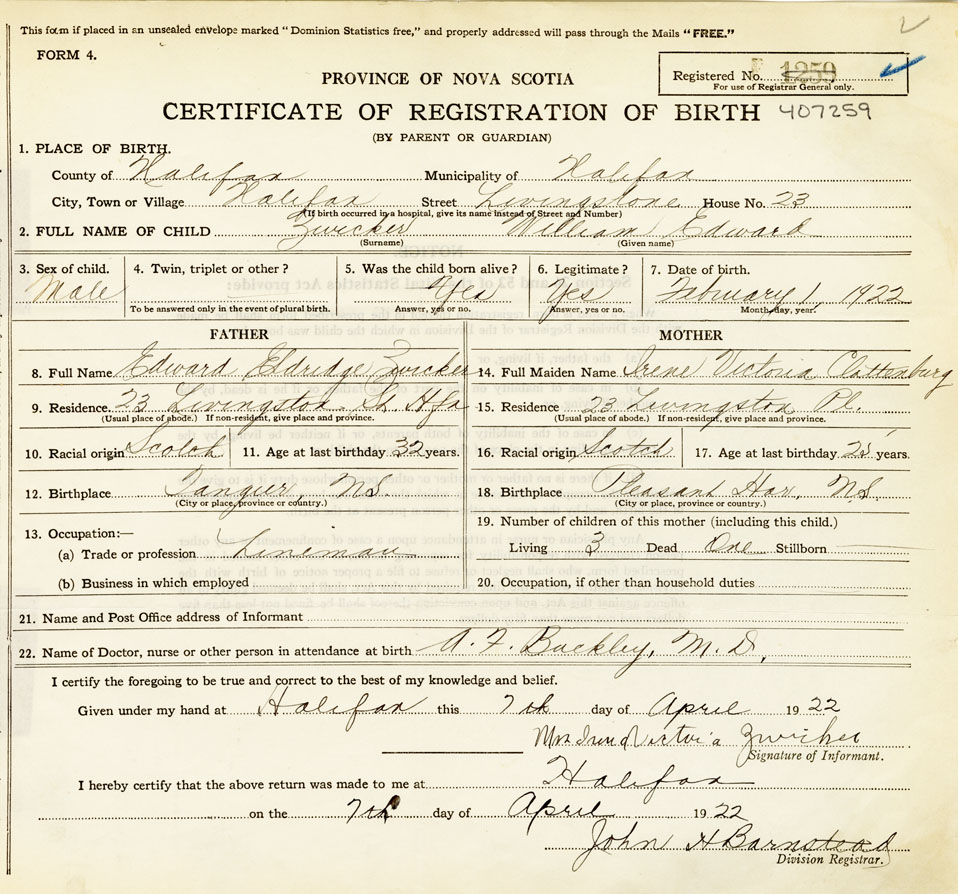 This form if placed in an unsealed envelope marked "Dominion Statistics free," and properly addressed will pass through the Mails "FREE."
FORM 4.
Registered No. 1259
For use of Registrar General only.
PROVINCE OF NOVA SCOTIA
CERTIFICATE OF REGISTRATION OF BIRTH 407259
(BY PARENT OR GUARDIAN)
1. PLACE OF BIRTH.
County of Halifax Municipality of Halifax
City, Town or Village Halifax Street Livingstone House No. 23
(If birth occurred in a hospital, give its name instead of Street and Number)
2. FULL NAME OF CHILD Zwicker William Edward
(Surname) (Given name)
3. Sex of child. 4. Twin, triplet or other? 5. Was the child born alive? 6. Legitimate? 7. Date of birth.
Male Yes Yes February 1, 1922
To be answered only in the event of plural birth. Answer, yes or no. Answer, yes or no. Month, day, year.
FATHER MOTHER
8. Full Name Edward Eldridge Zwicker 14. Full Maiden Name Irene Victoria Clattenburg
9. Residence. 23 Livingston St. Hfx 15. Residence 23 Livingston Pl.
(Usual place of abode.) If non-resident, give place and province. (Usual place of abode.) If non-resident, give place and province.
10. Racial origin Scotch 11. Age at last birthday 32 years. 16. Racial origin Scotch 17. Age at last birthday 25 years.
12. Birthplace Tangier, N.S. 18. Birthplace Pleasant Har, N.S.
(City or place, province or country.) (City or place, province or country.)
13. Occupation:— 19. Number of children of this mother (including this child.)
(a) Trade or profession Lineman Living 3 Dead One Stillborn —
(b) Business in which employed 20. Occupation, if other than household duties
21. Name and Post Office address of Informant
22. Name of Doctor, nurse or other person in attendance at birth A. F. Buckley, M.D.,
I certify the foregoing to be true and correct to the best of my knowledge and belief.
Given under my hand at Halifax this 7th day of April 1922
Mrs Irene Victoria Zwicker
Signature of Informant.
I hereby certify that the above return was made to me at Halifax
on the 7th day of April 1922
John H Barnstead
Division Registrar.